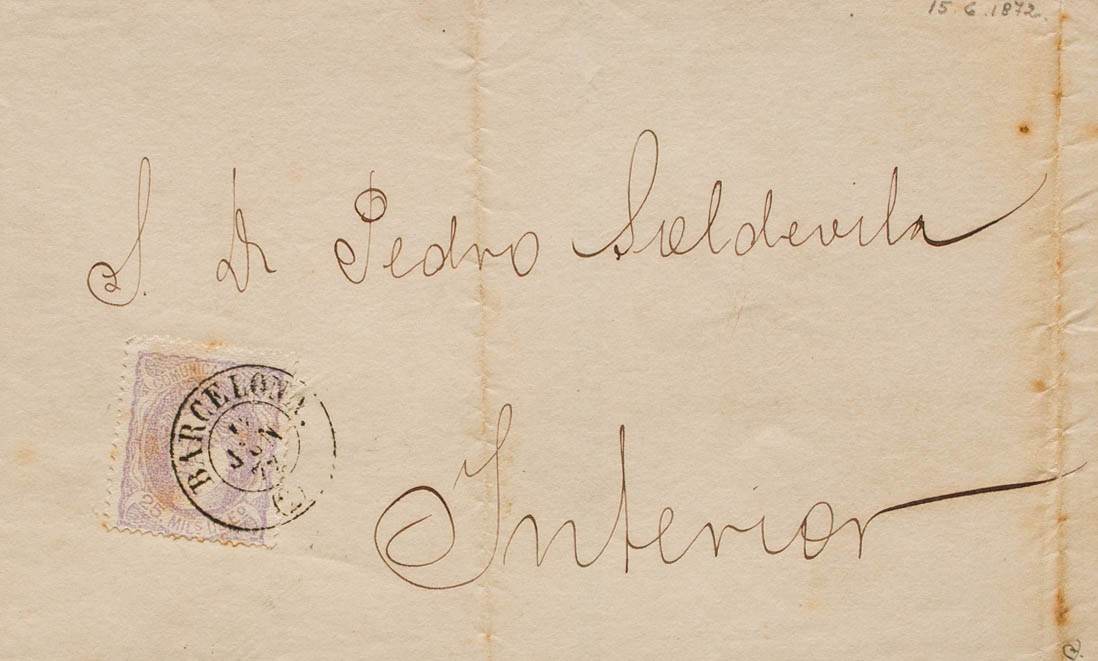 15.6.1872.
S. D. Pedro Soldevila
COMUNIC
BARCELONA.
JUN
25 MILS DE Eº
Interior